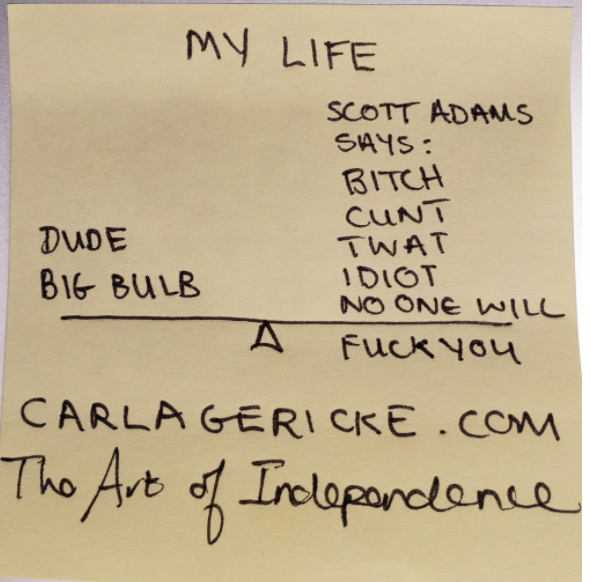 MY LIFE
SCOTT ADAMS
SAYS:
BITCH
CUNT
TWAT
IDIOT
NO ONE WILL
FUCK YOU
DUDE
BIG BULB
CARLAGERICKE.COM
The Art of Independence